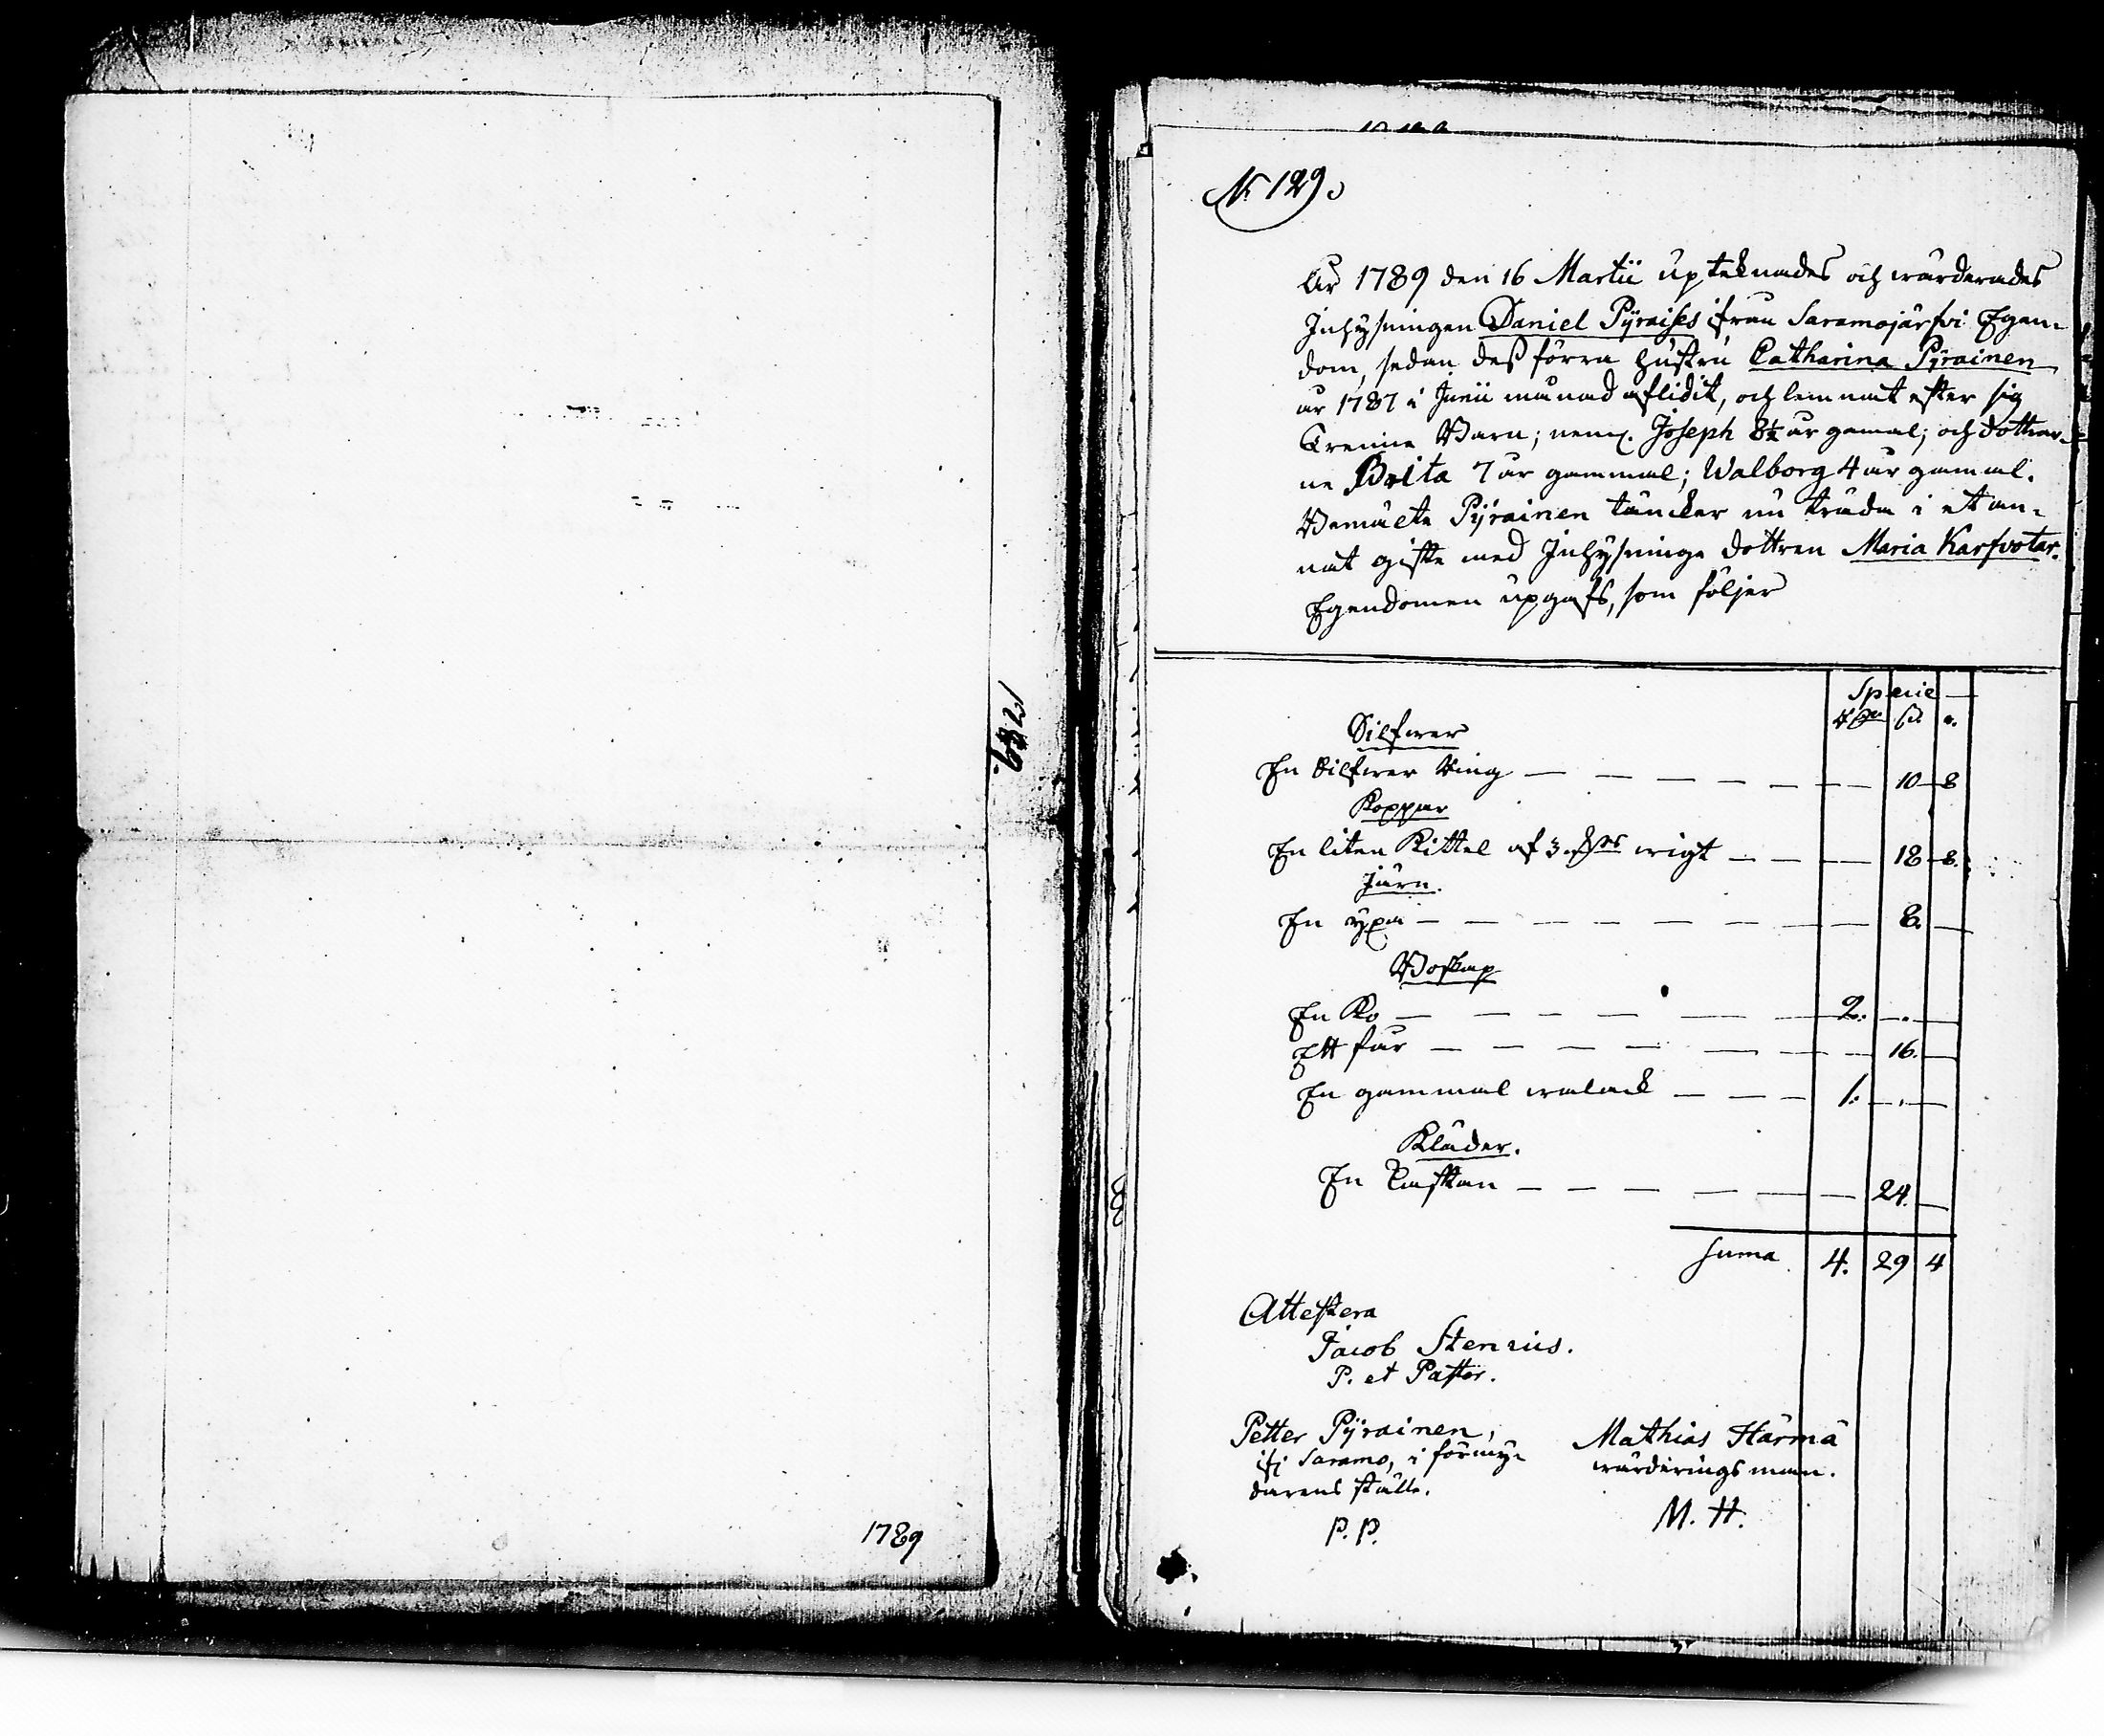 1789
129
N 129
År 1789 den 16 Martii upteknades och wärderades
Inhysningen Daniel Pyraises ifrån Saramojärfvi Egen-
dom, sedan dess förra hustru Catharina Pyrainen
år 1787 i Junii månad aflidit, och lemnat efter sig
Trenne Barn; neml. Joseph 8½ år gamal; och dottrar-
ne Brita 7 år gammal; Walborg 4 år gamal.
Bemälte Pyrainen täncker nu träda i et an-
nat gifte med Inhysninge dottren Maria Karfvotar.
Egendomen upgafs, som följer
Specie
Silfwer
En Silfwer Ring — — — — — — 10 — 8
Koppar
En liten Kittel af 3 wigt — — — 18 — 8.
Järn.
En yxa — — — — — — — 8. —
Boskap
En Ko — — — — — — 2. — . —
Ett får — — — — — — — 16. —
En gammal walack — — — 1. — . —
Kläder.
En Caftan — — — — — — 24. —
Suma 4. 29 4
Attestera
Jacob Stenrius.
P. et Pastor.
Petter Pyrainen,
ifr Saramo, i förmyn-
darens ställe.
P. P.
Mathias Härmä
wärderings man.
M. H.